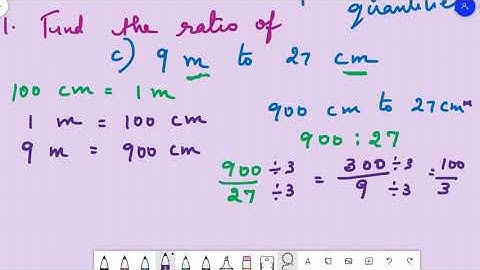 quantitie
1. Find the ratio of
c) 9 m to 27 cm
100 cm = 1 m
1 m = 100 cm
9 m = 900 cm
900 cm to 27 cm
900 : 27
900/27 ÷3/÷3 = 300/9 ÷3/÷3 = 100/3